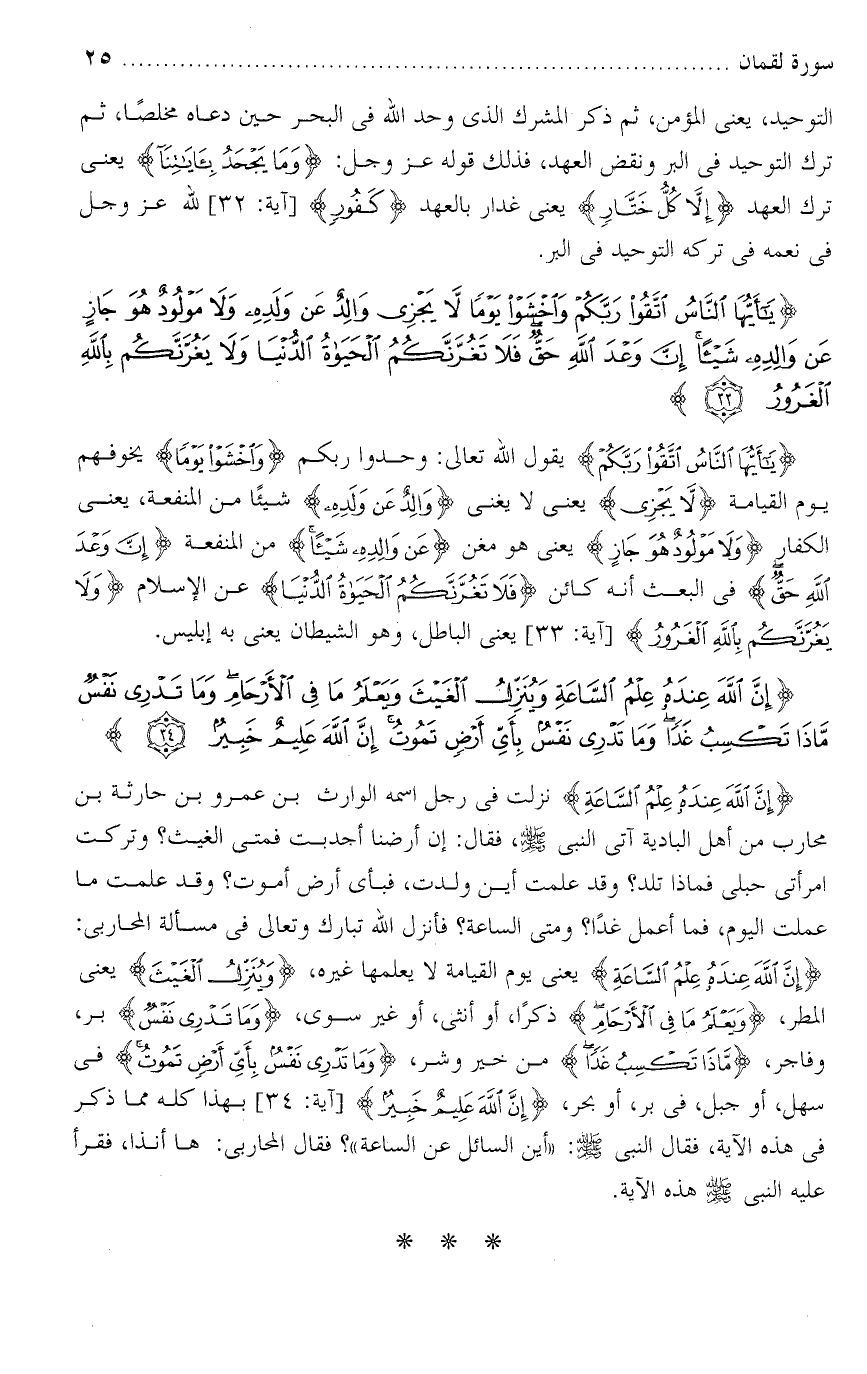 سورة لقمان ........................................................................ ٢٥
التوحيد، يعنى المؤمن، ثم ذكر المشرك الذى وحد الله فى البحر حين دعاه مخلصًا، ثم
ترك التوحيد فى البر ونقض العهد، فذلك قوله عز وجل: ﴿وَمَا يَجْحَدُ بِـَٔايَـٰتِنَآ﴾ يعنى
ترك العهد ﴿إِلَّا كُلُّ خَتَّارٍ﴾ يعنى غدار بالعهد ﴿كَفُورٍ﴾ [آية: ٣٢] لله عز وجل
فى نعمه فى تركه التوحيد فى البر.
﴿يَـٰٓأَيُّهَا ٱلنَّاسُ ٱتَّقُوا۟ رَبَّكُمْ وَٱخْشَوْا۟ يَوْمًا لَّا يَجْزِى وَالِدٌ عَن وَلَدِهِۦ وَلَا مَوْلُودٌ هُوَ جَازٍ
عَن وَالِدِهِۦ شَيْـًٔا ۚ إِنَّ وَعْدَ ٱللَّهِ حَقٌّ ۖ فَلَا تَغُرَّنَّكُمُ ٱلْحَيَوٰةُ ٱلدُّنْيَا وَلَا يَغُرَّنَّكُم بِٱللَّهِ
ٱلْغَرُورُ ٣٣ ﴾
﴿يَـٰٓأَيُّهَا ٱلنَّاسُ ٱتَّقُوا۟ رَبَّكُمْ﴾ يقول الله تعالى: وحدوا ربكم ﴿وَٱخْشَوْا۟ يَوْمًا﴾ يخوفهم
يوم القيامة ﴿لَّا يَجْزِى﴾ يعنى لا يغنى ﴿وَالِدٌ عَن وَلَدِهِۦ﴾ شيئًا من المنفعة، يعنى
الكفار ﴿وَلَا مَوْلُودٌ هُوَ جَازٍ﴾ يعنى هو مغن ﴿عَن وَالِدِهِۦ شَيْـًٔا ۚ﴾ من المنفعة ﴿إِنَّ وَعْدَ
ٱللَّهِ حَقٌّ ۖ﴾ فى البعث أنه كائن ﴿فَلَا تَغُرَّنَّكُمُ ٱلْحَيَوٰةُ ٱلدُّنْيَا﴾ عن الإسلام ﴿وَلَا
يَغُرَّنَّكُم بِٱللَّهِ ٱلْغَرُورُ﴾ [آية: ٣٣] يعنى الباطل، وهو الشيطان يعنى به إبليس.
﴿إِنَّ ٱللَّهَ عِندَهُۥ عِلْمُ ٱلسَّاعَةِ وَيُنَزِّلُ ٱلْغَيْثَ وَيَعْلَمُ مَا فِى ٱلْأَرْحَامِ ۖ وَمَا تَدْرِى نَفْسٌ
مَّاذَا تَكْسِبُ غَدًا ۖ وَمَا تَدْرِى نَفْسٌۢ بِأَىِّ أَرْضٍ تَمُوتُ ۚ إِنَّ ٱللَّهَ عَلِيمٌ خَبِيرٌۢ ٣٤ ﴾
﴿إِنَّ ٱللَّهَ عِندَهُۥ عِلْمُ ٱلسَّاعَةِ﴾ نزلت فى رجل اسمه الوارث بن عمرو بن حارثة بن
محارب من أهل البادية آتى النبى ﷺ، فقال: إن أرضنا أجدبت فمتى الغيث؟ وتركت
امرأتى حبلى فماذا تلد؟ وقد علمت أين ولدت، فبأى أرض أموت؟ وقد علمت ما
عملت اليوم، فما أعمل غدًا؟ ومتى الساعة؟ فأنزل الله تبارك وتعالى فى مسألة المحاربى:
﴿إِنَّ ٱللَّهَ عِندَهُۥ عِلْمُ ٱلسَّاعَةِ﴾ يعنى يوم القيامة لا يعلمها غيره، ﴿وَيُنَزِّلُ ٱلْغَيْثَ﴾ يعنى
المطر، ﴿وَيَعْلَمُ مَا فِى ٱلْأَرْحَامِ ۖ﴾ ذكرًا، أو أنثى، أو غير سوى، ﴿وَمَا تَدْرِى نَفْسٌ﴾ بر،
وفاجر، ﴿مَّاذَا تَكْسِبُ غَدًا ۖ﴾ من خير وشر، ﴿وَمَا تَدْرِى نَفْسٌۢ بِأَىِّ أَرْضٍ تَمُوتُ ۚ﴾ فى
سهل، أو جبل، فى بر، أو بحر، ﴿إِنَّ ٱللَّهَ عَلِيمٌ خَبِيرٌۢ﴾ [آية: ٣٤] بهذا كله مما ذكر
فى هذه الآية، فقال النبى ﷺ: «أين السائل عن الساعة»؟ فقال المحاربى: ها أنذا، فقرأ
عليه النبى ﷺ هذه الآية.
* * *